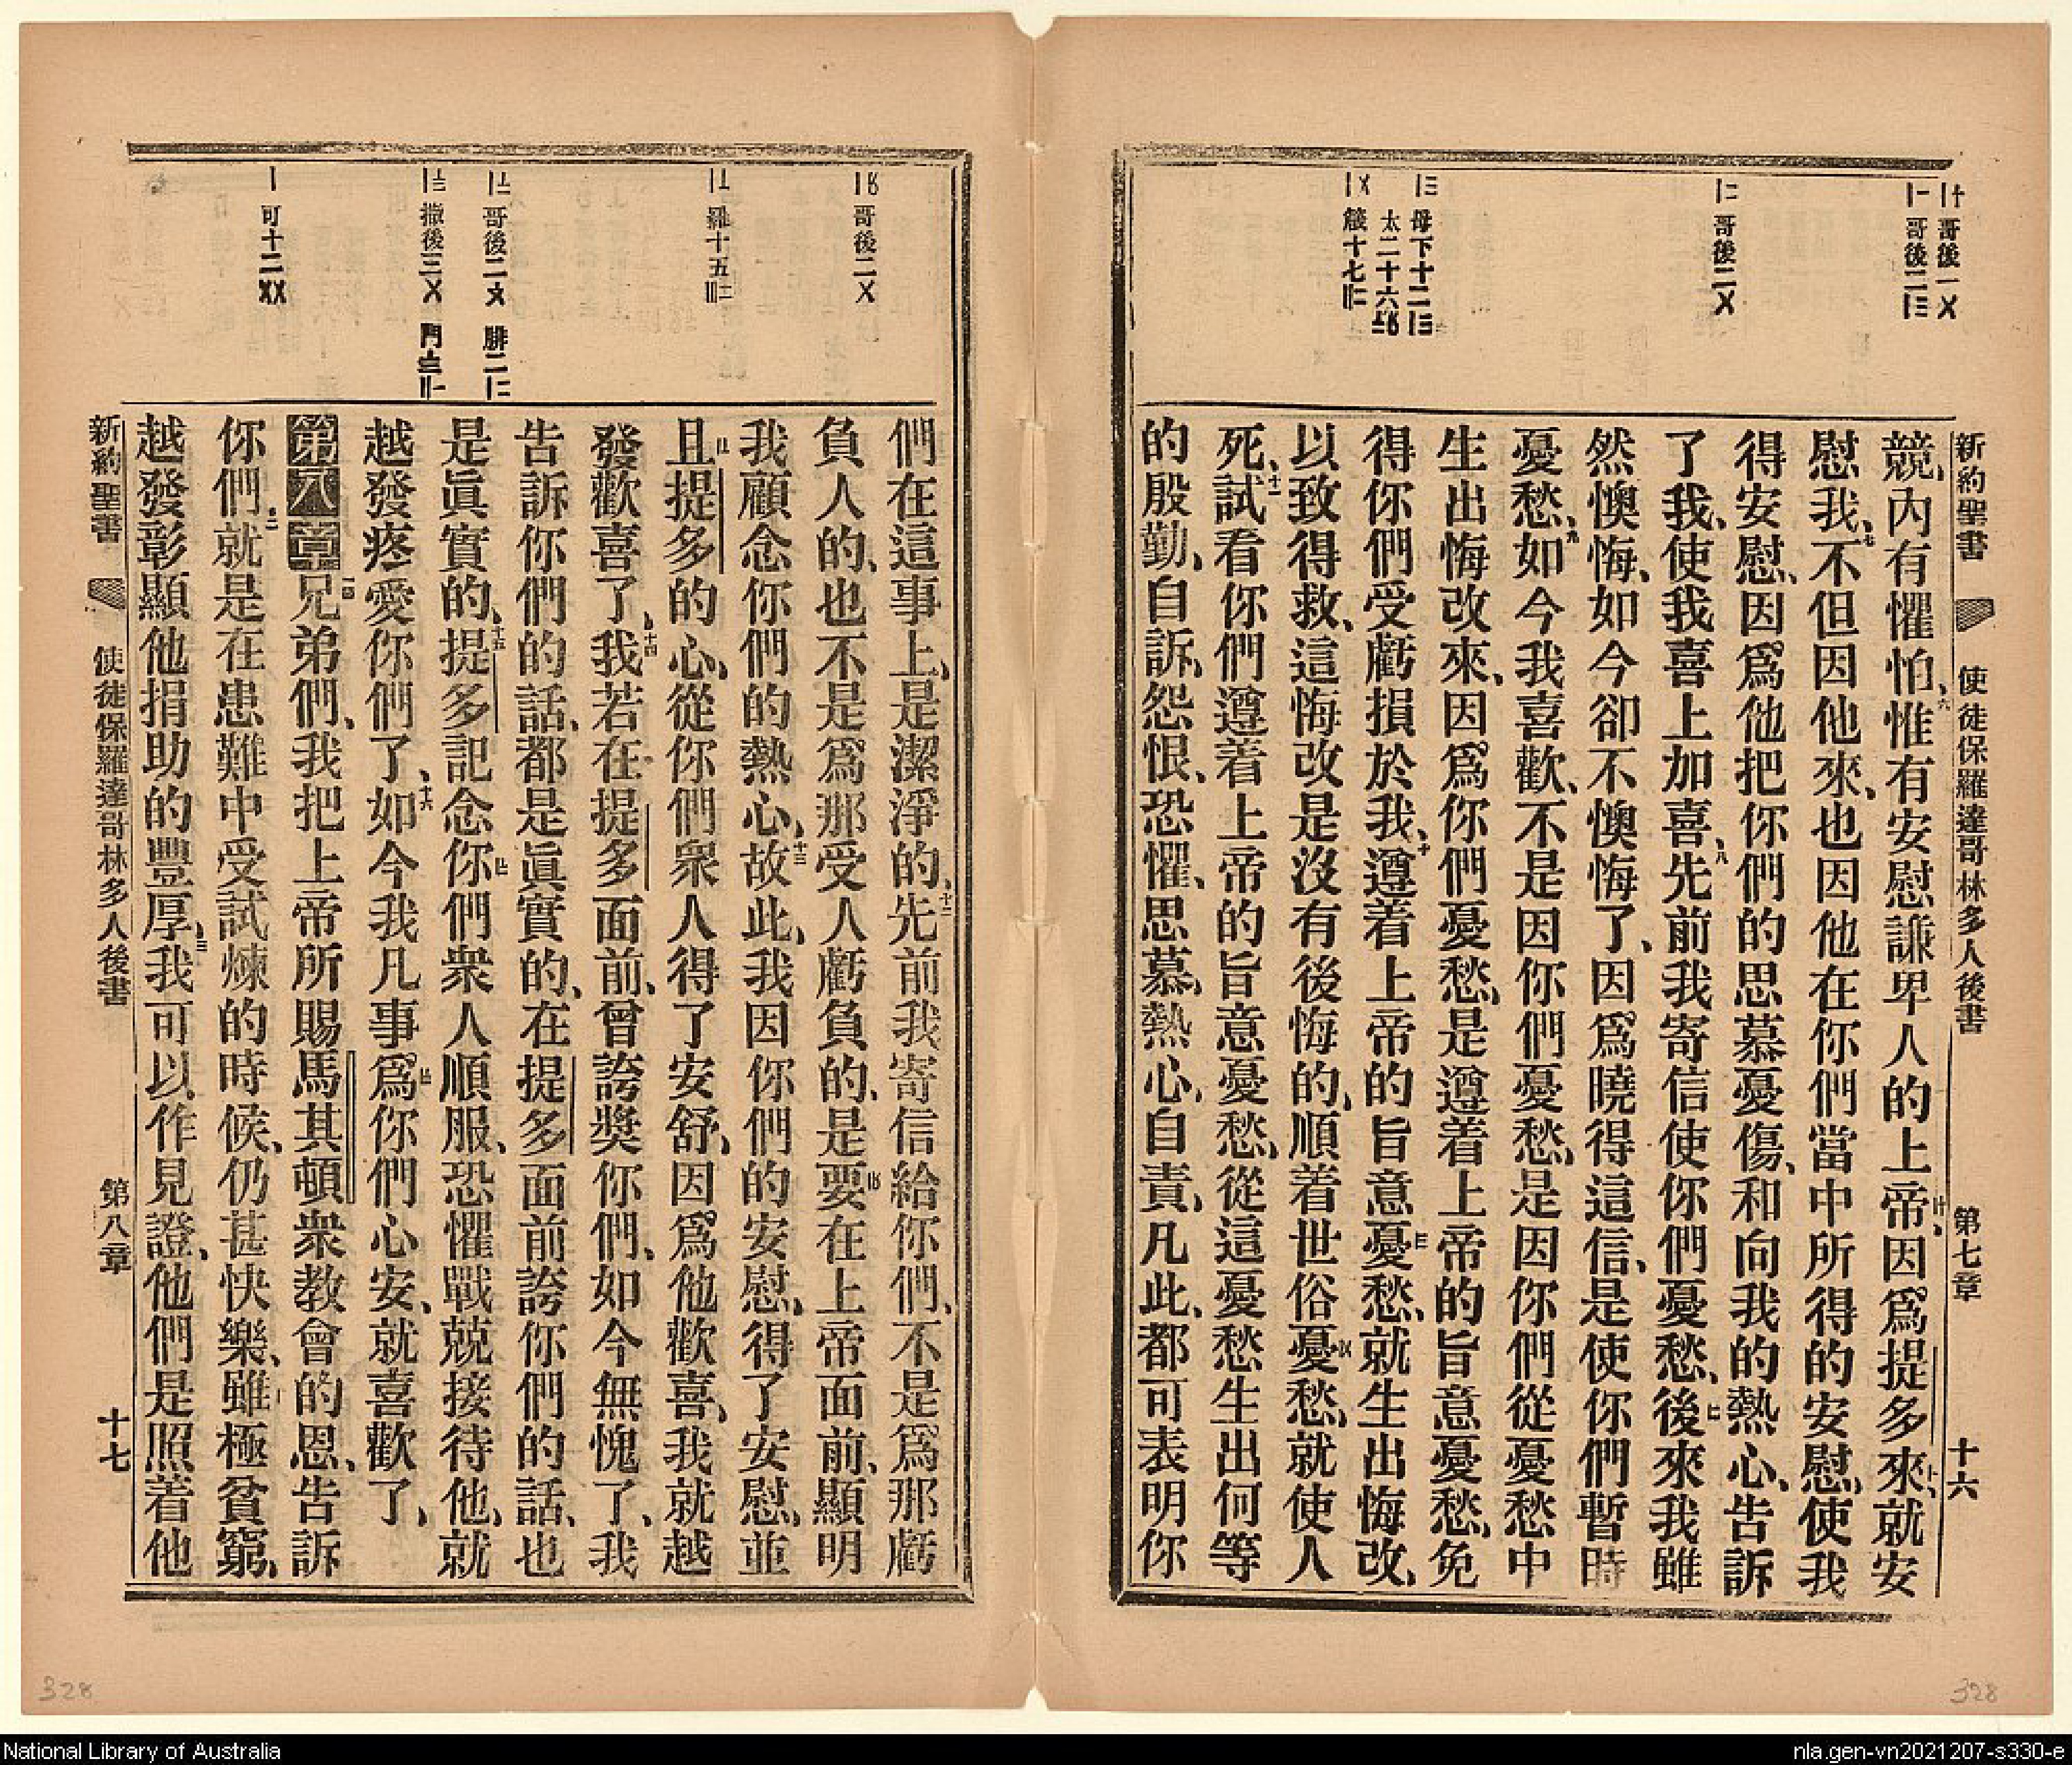 新約聖書 使徒保羅達哥林多人後書 第七章 十六
哥後一
哥後二
哥後二
母下十二
太二十六
箴十七
競、內有懼怕、六惟有安慰謙卑人的上帝因爲提多來、就安
慰我、七不但因他來、也因他在你們當中所得的安慰、使我
得安慰、因爲他把你們的思慕憂傷、和向我的熱心、告訴
了我、使我喜上加喜、八先前我寄信使你們憂愁、後來我雖
然懊悔、如今卻不懊悔了、因爲曉得這信、是使你們暫時
憂愁、九如今我喜歡、不是因你們憂愁、是因你們從憂愁中
生出悔改來、因爲你們憂愁、是遵着上帝的旨意憂愁、免
得你們受虧損於我、十遵着上帝的旨意憂愁、就生出悔改、
以致得救、這悔改是沒有後悔的、順着世俗憂愁、就使人
死、十一試看你們遵着上帝的旨意憂愁、從這憂愁生出何等
的殷勤、自訴、怨恨、恐懼、思慕、熱心、自責、凡此、都可表明你
哥後二
羅十五
哥後二 腓二
撒後三 門
可十二
們在這事上、是潔淨的、十二先前我寄信給你們、不是爲那虧
負人的、也不是爲那受人虧負的、是要在上帝面前、顯明
我顧念你們的熱心、十三故此、我因你們的安慰、得了安慰、並
且提多的心、從你們衆人得了安舒、因爲他歡喜、我就越
發歡喜了、十四我若在提多面前、曾誇獎你們、如今無愧了、我
告訴你們的話、都是眞實的、在提多面前誇你們的話、也
是眞實的、十五提多記念你們衆人順服、恐懼戰兢接待他、就
越發疼愛你們了、十六如今我凡事爲你們心安、就喜歡了、
第八章一兄弟們、我把上帝所賜馬其頓衆教會的恩、告訴
你們、二就是在患難中受試煉的時候、仍甚快樂、雖極貧窮、
越發彰顯他捐助的豐厚、三我可以作見證、他們是照着他
新約聖書 使徒保羅達哥林多人後書 第八章 十七
328
328
National Library of Australia
nla.gen-vn2021207-s330-e